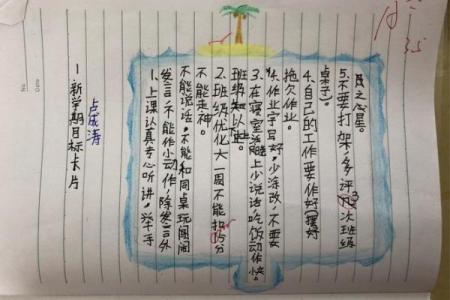 新学期目标卡片
卢成涛
1、上课认真专心听讲，举手
发言，不能作小动作，除发言外
不能说话，不能和同桌玩闹
不能走神。
2、班级优化大 一周不能扣5分
班级 以上
3、在寝室 上少说话吃饭动作快。
4、作业字写好，少涂改，不要
拖欠作业。
4、自己的工作要作好（摆好
桌子）。
5、不要打架，多评3次班级
之心星。